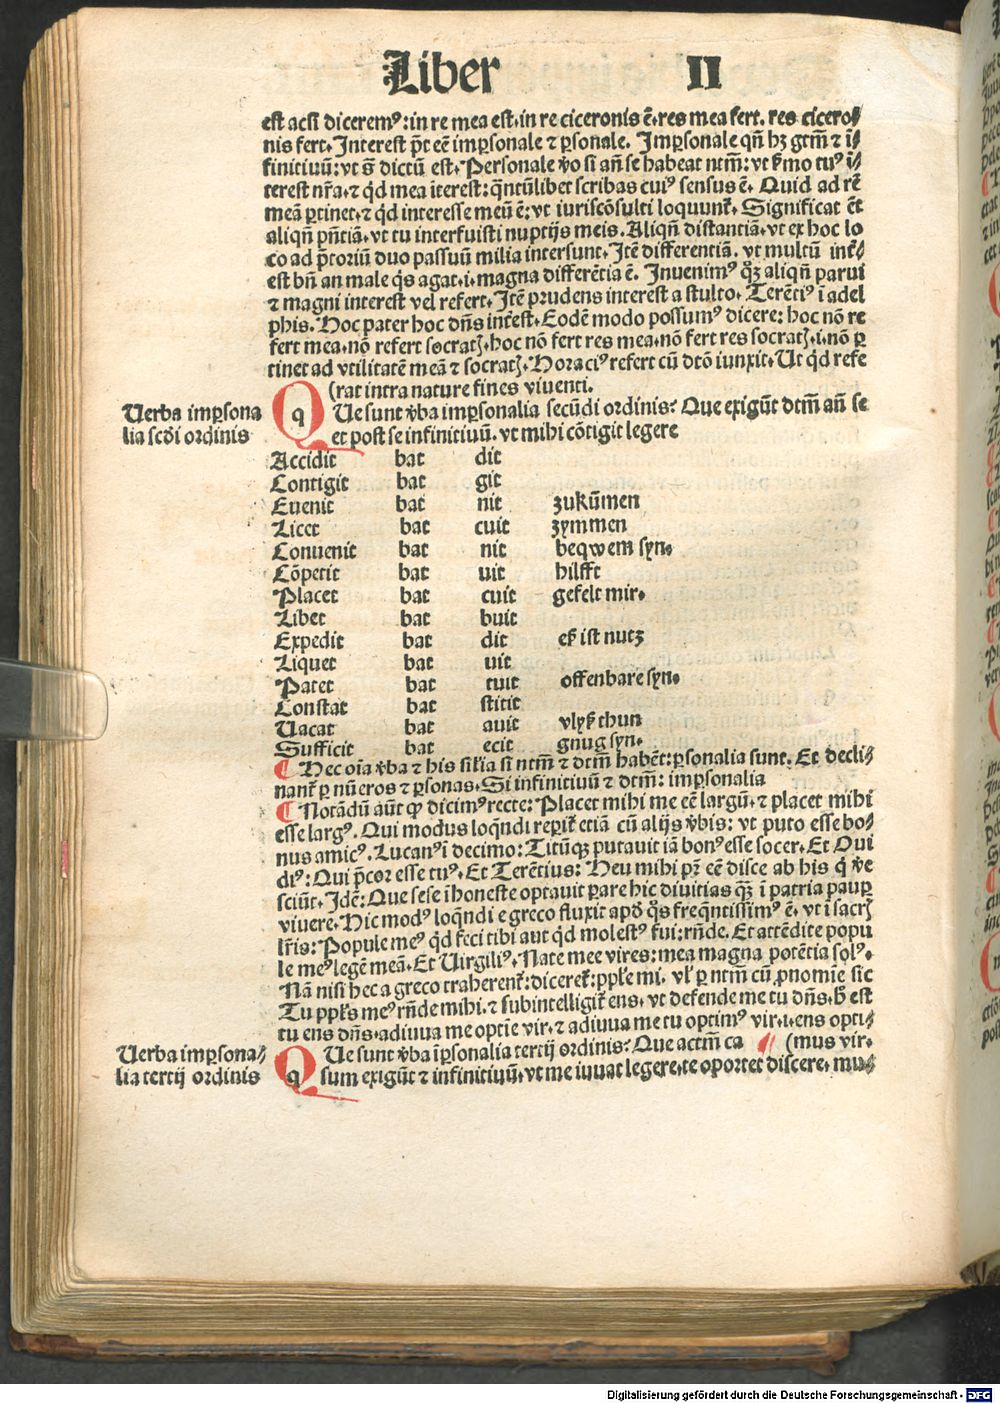 Liber II
est acsi diceremꝰ: in re mea est. in re ciceronis ē. res mea fert. res cicero⸗
nis fert. Interest p̄t eē imꝑsonale ⁊ ꝑsonale. Imꝑsonale qn̄ hꝫ gtm̄ ⁊ ī⸗
finitiuū: vt s̄ dictū est. Personale v̾o si an̄ se habeat ntm̄: vt s̾mo tuꝰ ī⸗
terest nr̄a. ⁊ qd̾ mea īterest: q̄ntūlibet scribas cuiꝰ sensus ē. Quid ad rē
meā ꝑtinet. ⁊ qd̾ interesse meū ē: vt iuriscōsulti loquunt̾. Significat ēt
aliqn̄ pn̄tiā. vt tu interfuisti nuptijs meis. Aliqn̄ distantiā. vt ex hoc lo
co ad p̄toriū duo passuū milia intersunt. Itē differentiā. vt multū int̾⸗
est bn̄ an male q̇s agat. i. magna differētia ē. Inuenimꝰ qꝫ aliqn̄ parui
⁊ magni interest vel refert. Itē prudens interest a stulto. Terētiꝰ ī adel
phis. Hoc pater hoc dn̄s int̾est. Eodē modo possumꝰ dicere: hoc nō re
fert mea. nō refert socratꝭ. hoc nō fert res mea. nō fert res socratꝭ. i. nō ꝑ
tinet ad vtilitatē meā ⁊ socratꝭ. Horaciꝰ refert cū dtō iunxit. Ut qd̾ refe
(rat intra nature fines viuenti.
Verba imꝑsona
lia scd̾i ordinis
Que sunt v̾ba imꝑsonalia secūdi ordinis? Que exigūt dtm̄ an̄ se
et post se infinitiuū. vt mihi cōtigit legere
Accidit bat dit
Contigit bat git
Euenit bat nit zukūmen
Licet bat cuit zymmen
Conuenit bat nit beqwem syn.
Cōpetit bat uit hilfft
Placet bat cuit gefelt mir.
Libet bat buit
Expedit bat dit eß ist nutz
Liquet bat uit
Patet bat tuit offenbare syn.
Constat bat stitit
Uacat bat auit vlyß thun
Sufficit bat ecit gnug syn.
¶ Hec oīa v̾ba ⁊ his sil̾ia si ntm̄ ⁊ dtm̄ habēt: ꝑsonalia sunt. Et decli⸗
nant̾ ꝑ nūeros ⁊ ꝑsonas. Si infinitiuū ⁊ dtm̄: imꝑsonalia
¶ Notādū aūt ꝙ dicimꝰ recte: Placet mihi me eē largū. ⁊ placet mihi
esse largꝰ. Qui modus loq̄ndi reꝑit̾ etiā cū alijs v̾bis: vt puto esse bo⸗
nus amicꝰ. Lucanꝰ ī decimo: Titūqꝫ putauit iā bonꝰ esse socer. Et Oui
diꝰ: Qui p̄cor esse tuꝰ. Et Terētius: Heu mihi pr̄ eē disce ab his q̇ v̾e
sciūt. Idē: Que sese īhoneste optauit parere hic diuitias qꝫ ī patria pauꝑ
viuere. Hic modꝰ loq̄ndi e greco fluxit apd̾ q̊s freq̄ntissimꝰ ē. vt ī sacrꝭ
lr̄is: Popule meꝰ qd̾ feci tibi aut qd̾ molestꝰ fui: rn̄de. Et attēdite popu
le meꝰ legē meā. Et Uirgiliꝰ. Nate mee vires: mea magna potētia solꝰ.
Nā nisi hec a greco traherent̾: diceret̾: ppl̾e mi. vl̾ ꝑ ntm̄ cū ꝓnomīe sic
Tu ppl̾s meꝰ rn̄de mihi. ⁊ subintelligit̾ ens. vt defende me tu dn̄s. h̊ est
tu ens dn̄s. adiuua me optīe vir. ⁊ adiuua me tu optimꝰ vir. i. ens opti⸗
(mus vir.
Verba imꝑsona⸗
lia tertij ordinis
Que sunt v̾ba īꝑsonalia tertij ordinis? Que actm̄ ca ¶
sum exigūt ⁊ infinitiuū. vt me iuuat legere. te oportet discere. mu⸗
Digitalisierung gefördert durch die Deutsche Forschungsgemeinschaft - DFG